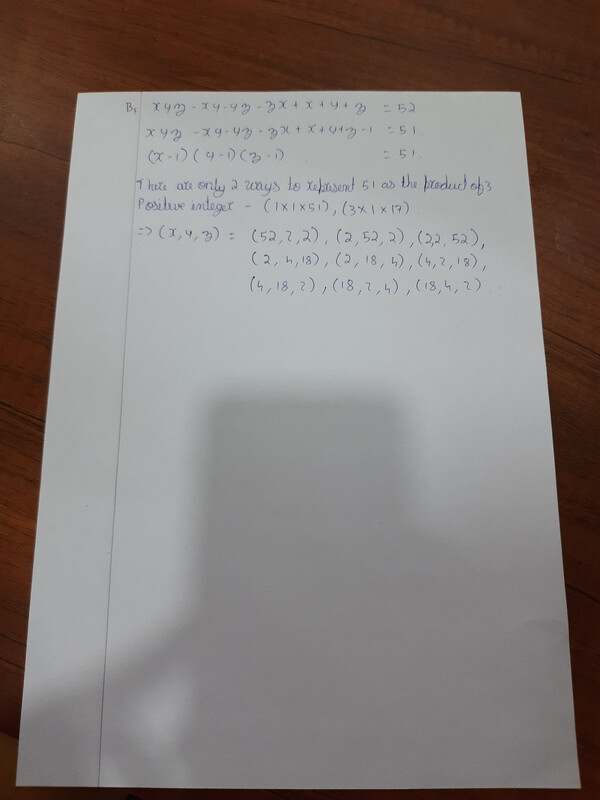 B, xyz - xy - yz - zx + x + y + z = 52
xyz - xy - yz - zx + x + y + z - 1 = 51
(x-1) (y-1) (z-1) = 51.
There are only 2 ways to represent 51 as the product of 3
Positive integer - (1x1x51), (3x1x17)
=> (x, y, z) = (52, 2, 2), (2, 52, 2), (2,2, 52),
(2, 4, 18), (2, 18, 4), (4, 2, 18),
(4, 18, 2), (18, 2, 4), (18, 4, 2)